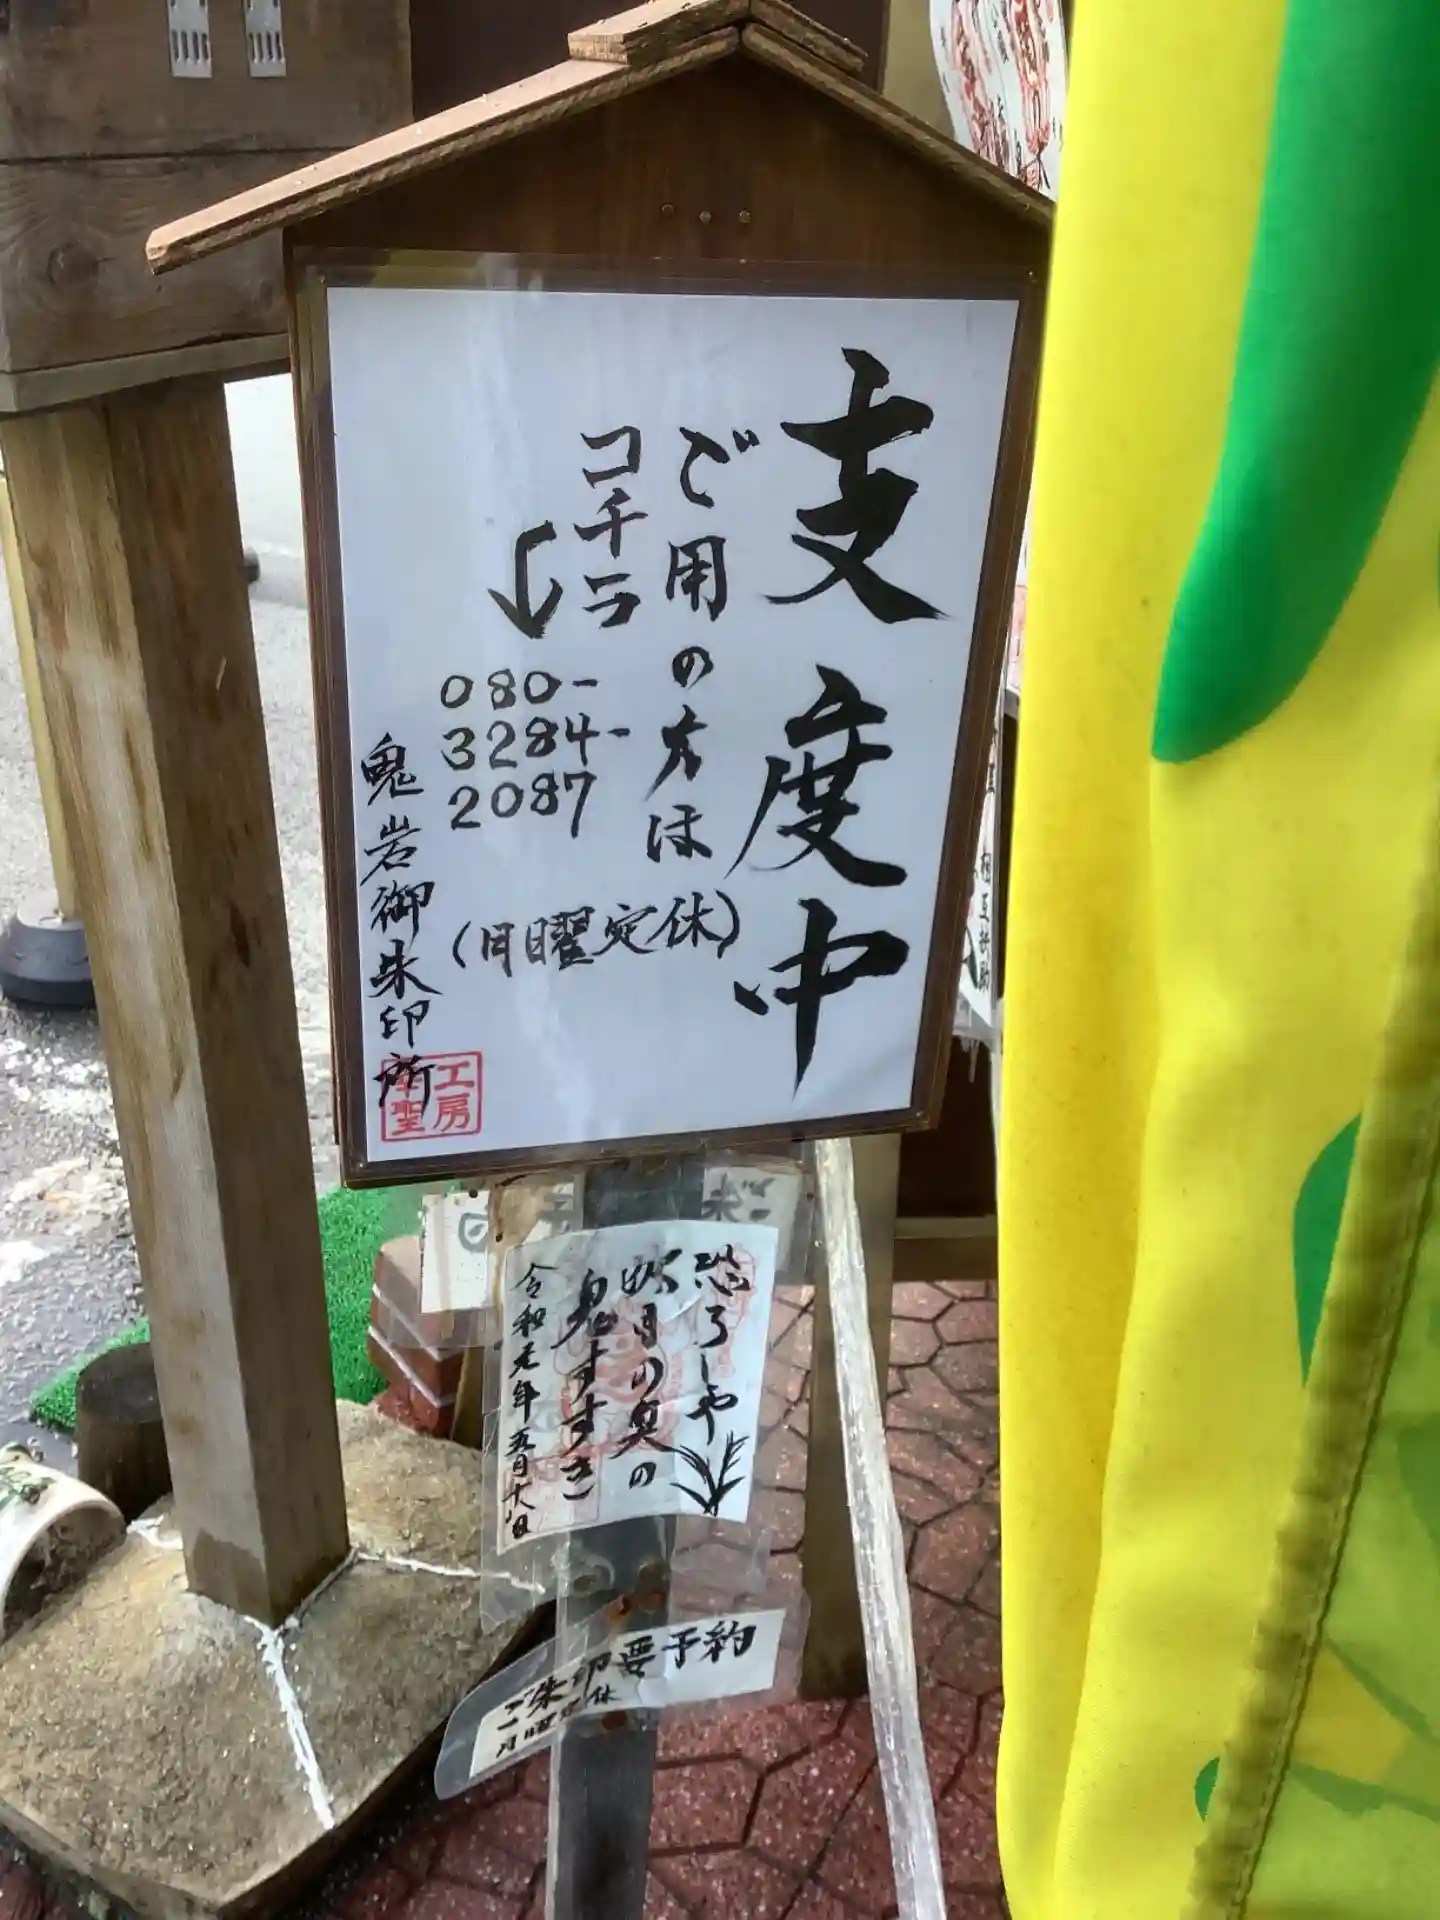 支度中
ご用の方は
コチラ
080-
3284-
2087
(月曜定休)
鬼岩御朱印所
工房
聖
恐ろしや
の奥の
鬼すすき
令和元年五月十八日
ご朱印要予約
月曜定休